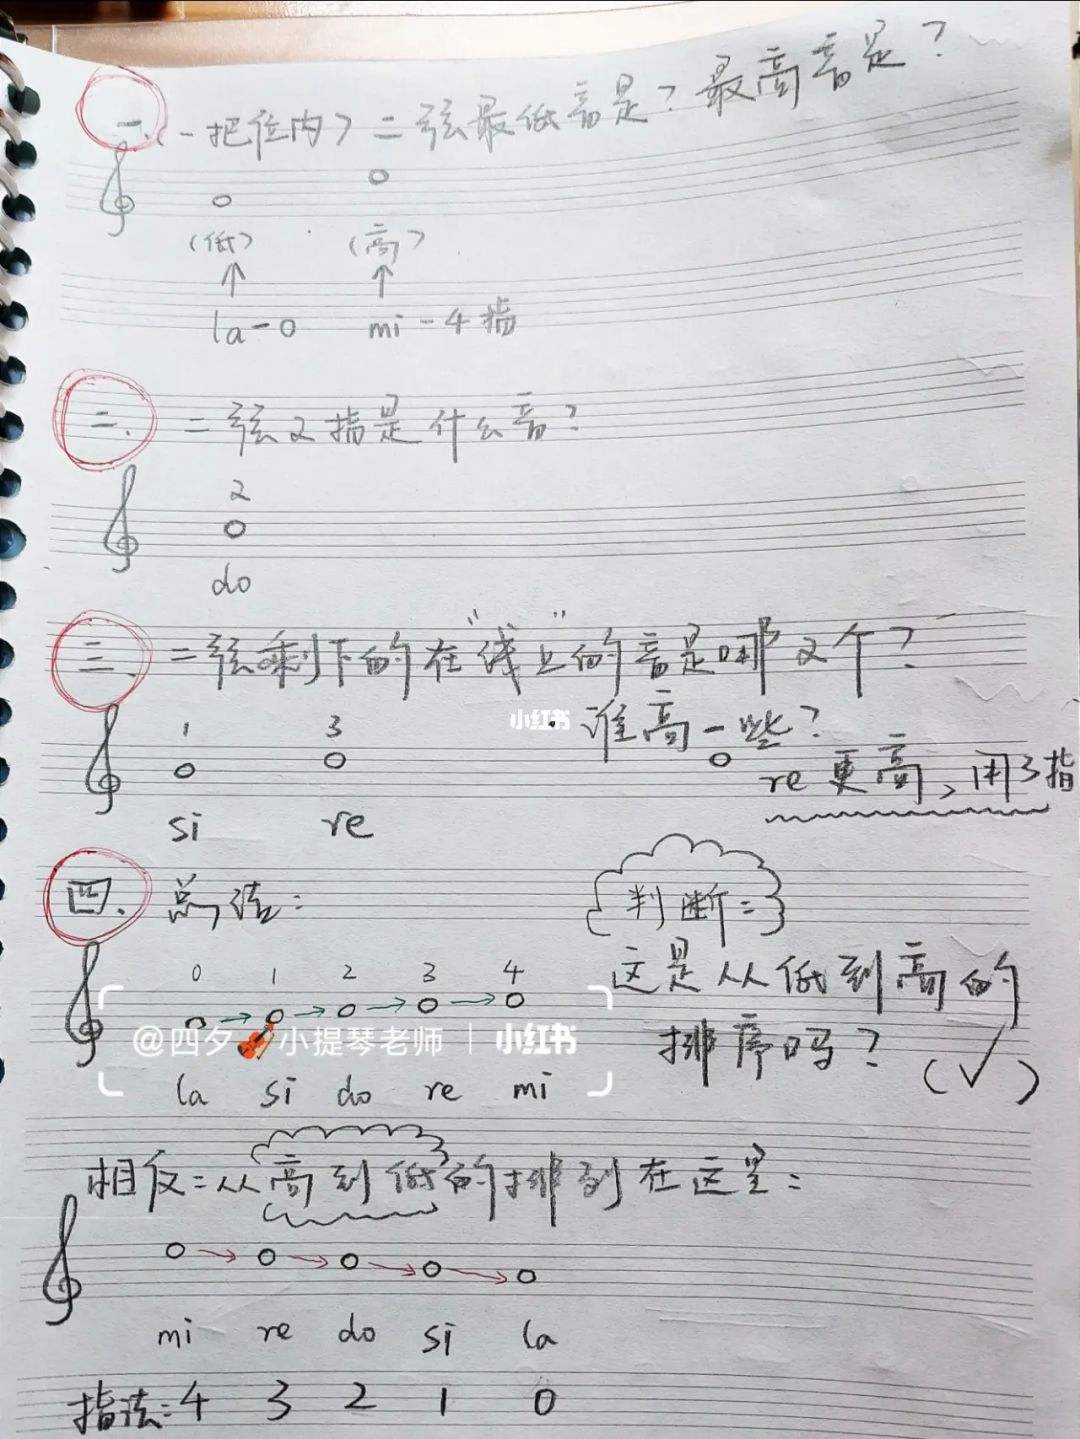 一、(一把位内)二弦最低音是?最高音是?
(低) (高)
↑ ↑
la-0 mi-4指
二、 二弦2指是什么音?
2
do
三、 二弦剩下的在"线上"的音是哪2个?
小红书
谁高一些?
1 3
re更高,用3指
si re
四、 总结:
判断:
0 1 2 3 4
这是从低到高的
@四夕 小提琴老师 | 小红书
排序吗?(√)
la si do re mi
相反:从高到低的排列在这里:
mi re do si la
指法:4 3 2 1 0